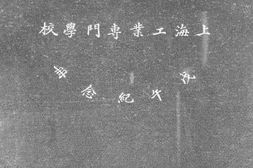 上海工業專門學校
戊午紀念冊